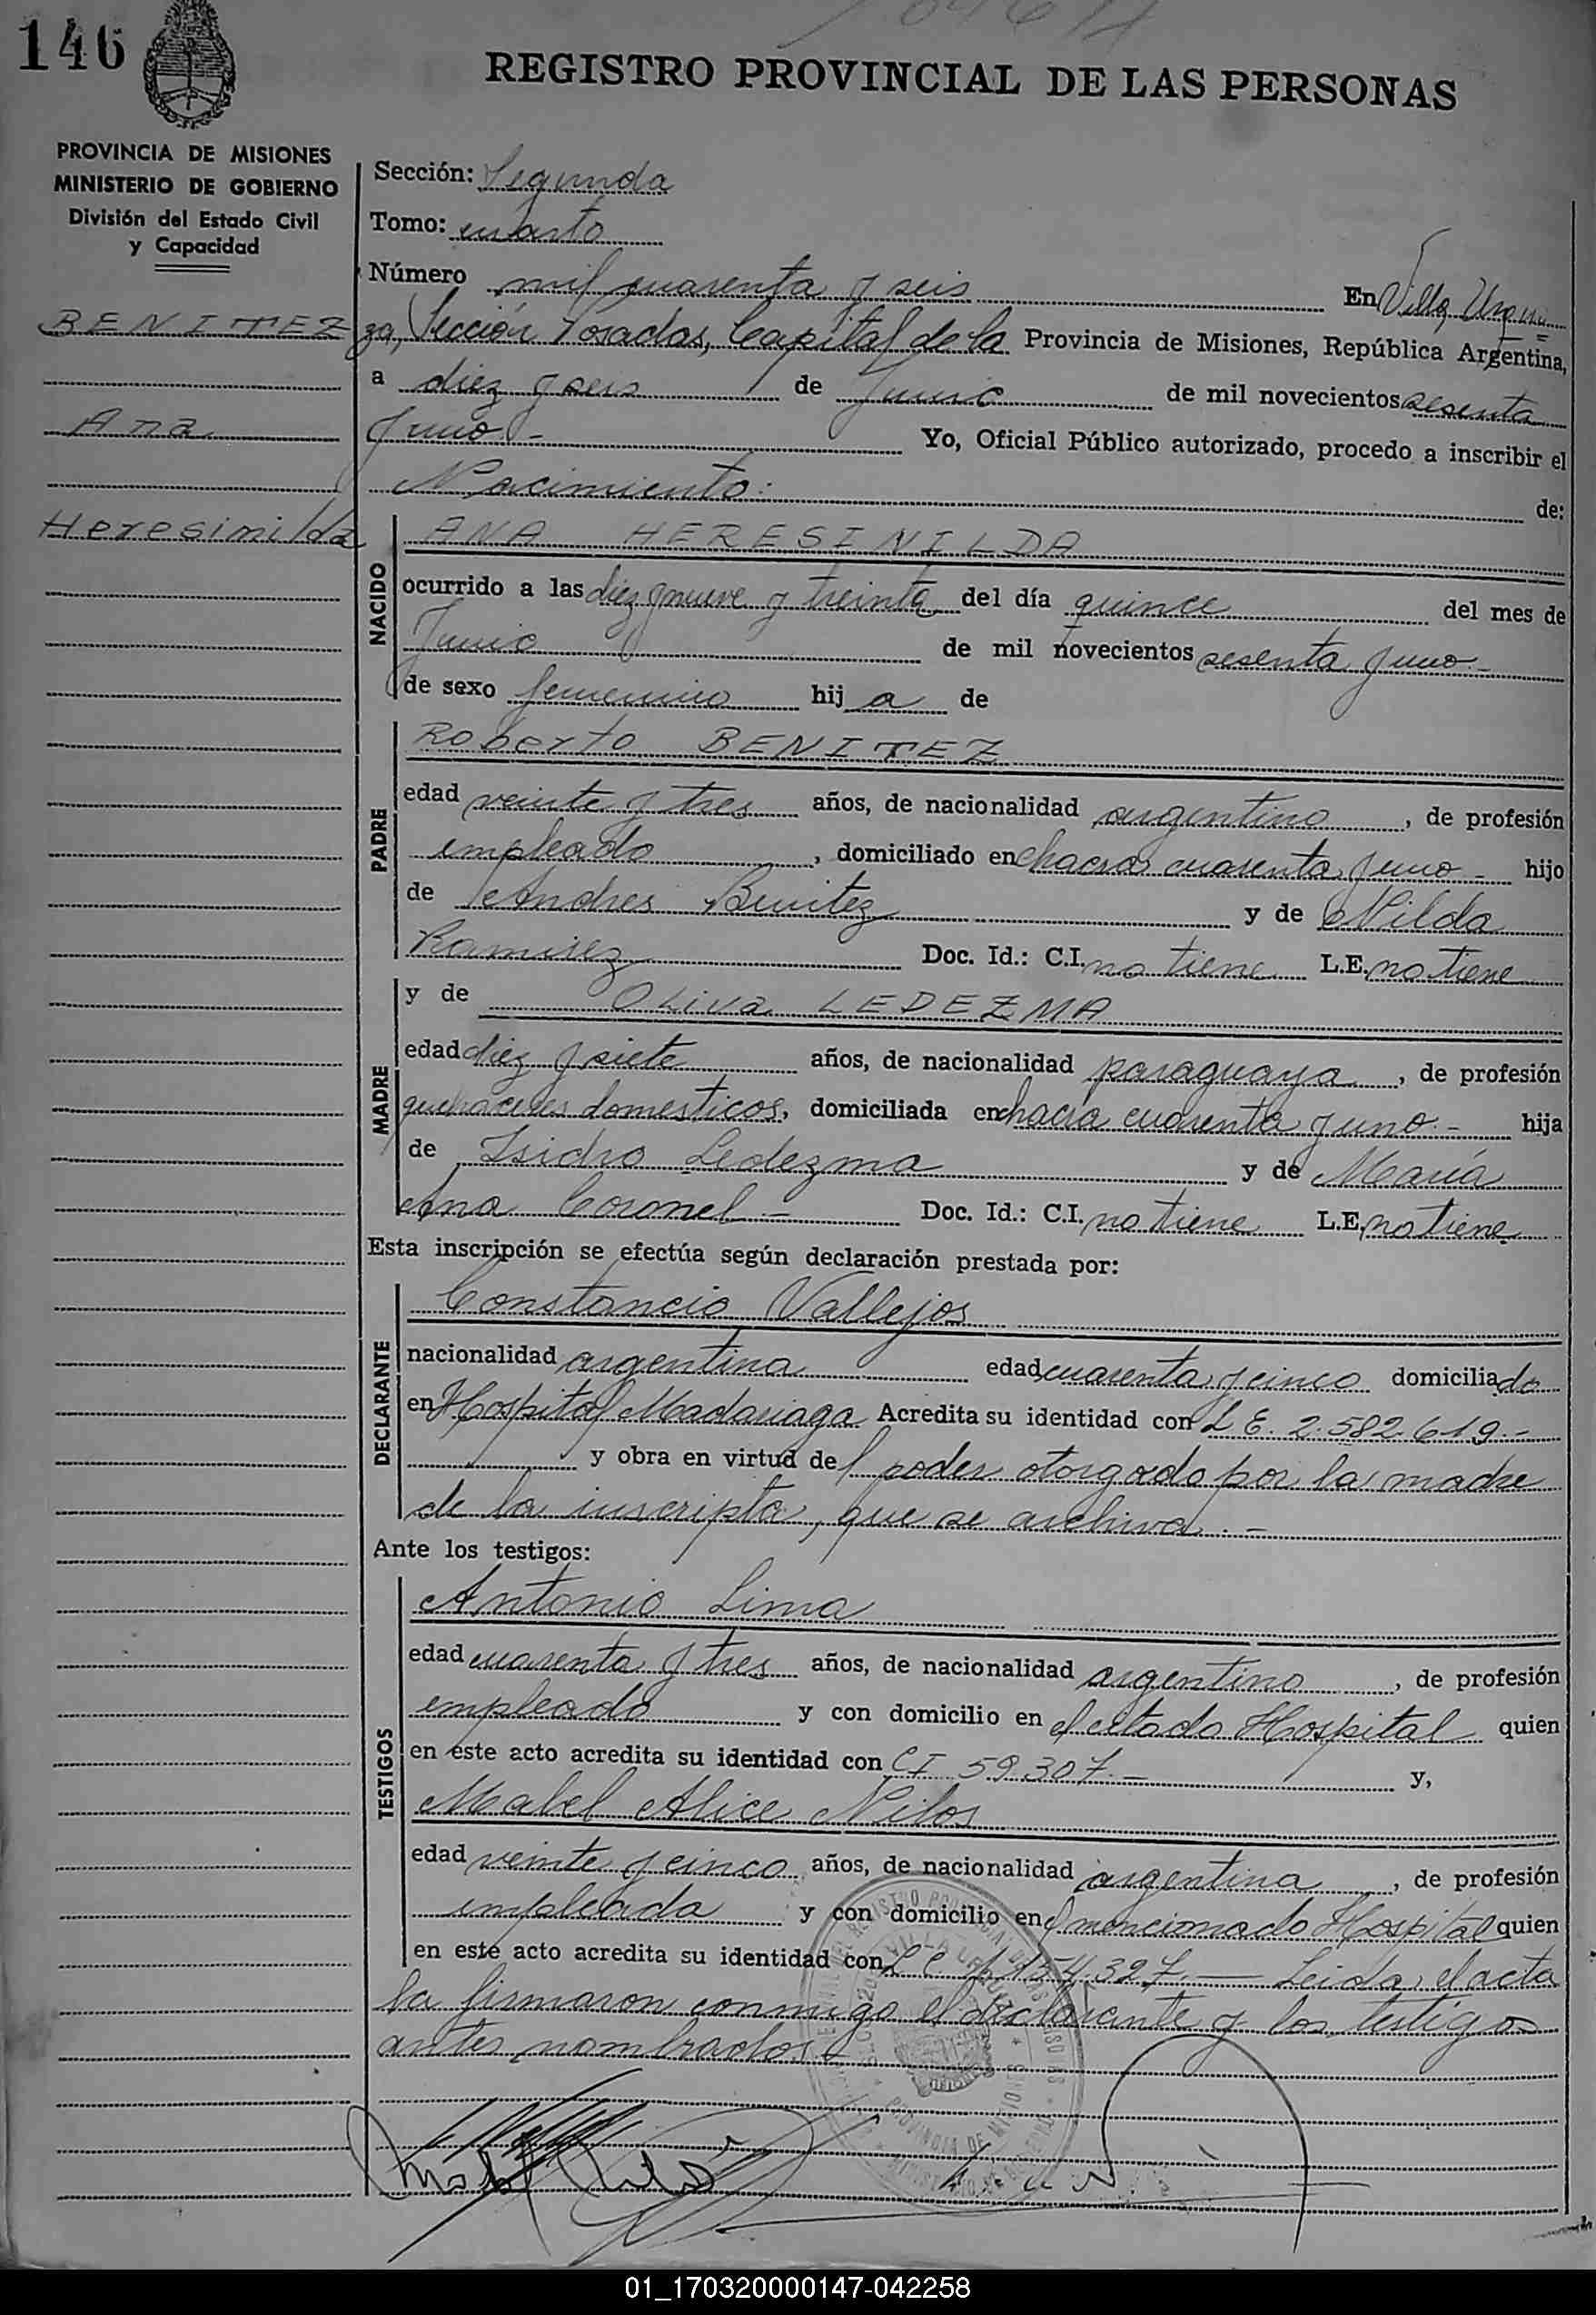 146
REGISTRO PROVINCIAL DE LAS PERSONAS
PROVINCIA DE MISIONES
MINISTERIO DE GOBIERNO
División del Estado Civil
y Capacidad
BENITEZ
Ana
Heresinilda
Sección: Segunda
Tomo: cuarto
Número mil cuarenta y seis En Villa Urqui
za, Sección Posadas, Capital de la Provincia de Misiones, República Argentina,
a diez y seis de Junio de mil novecientos sesenta
y uno.- Yo, Oficial Público autorizado, procedo a inscribir el
Nacimiento: de:
NACIDO
ANA HERESINILDA
ocurrido a las diez y nueve y treinta del día quince del mes de
Junio de mil novecientos sesenta y uno.-
de sexo femenino hij a de
PADRE
Roberto BENITEZ
edad veinte y tres años, de nacionalidad argentino, de profesión
empleado, domiciliado en chacra cuarenta y uno- hijo
de Andres Benitez y de Nilda
Ramirez Doc. Id.: C.I. no tiene L.E. no tiene
MADRE
y de Oliva LEDEZMA
edad diez y siete años, de nacionalidad paraguaya, de profesión
quehaceres domesticos, domiciliada en chacra cuarenta y uno.- hija
de Isidro Ledezma y de María
Ana Coronel- Doc. Id.: C.I. no tiene L.E. no tiene
Esta inscripción se efectúa según declaración prestada por:
DECLARANTE
Constancio Vallejos
nacionalidad argentina edad cuarenta y cinco domiciliado
en Hospital Madariaga Acredita su identidad con L E. 2.582.619.-
y obra en virtud del poder otorgado por la madre
de la inscripta, que se archiva.-
Ante los testigos:
TESTIGOS
Antonio Lima
edad cuarenta y tres años, de nacionalidad argentino, de profesión
empleado y con domicilio en el citado Hospital quien
en este acto acredita su identidad con CI 59.307.- y,
Mabel Alice Nilos
edad veinte y cinco años, de nacionalidad argentina, de profesión
empleada y con domicilio en el mencionado Hospital quien
en este acto acredita su identidad con L C. Leida el acta
la firmaron conmigo el declarante y los testigos
antes nombrados.
01_170320000147-042258